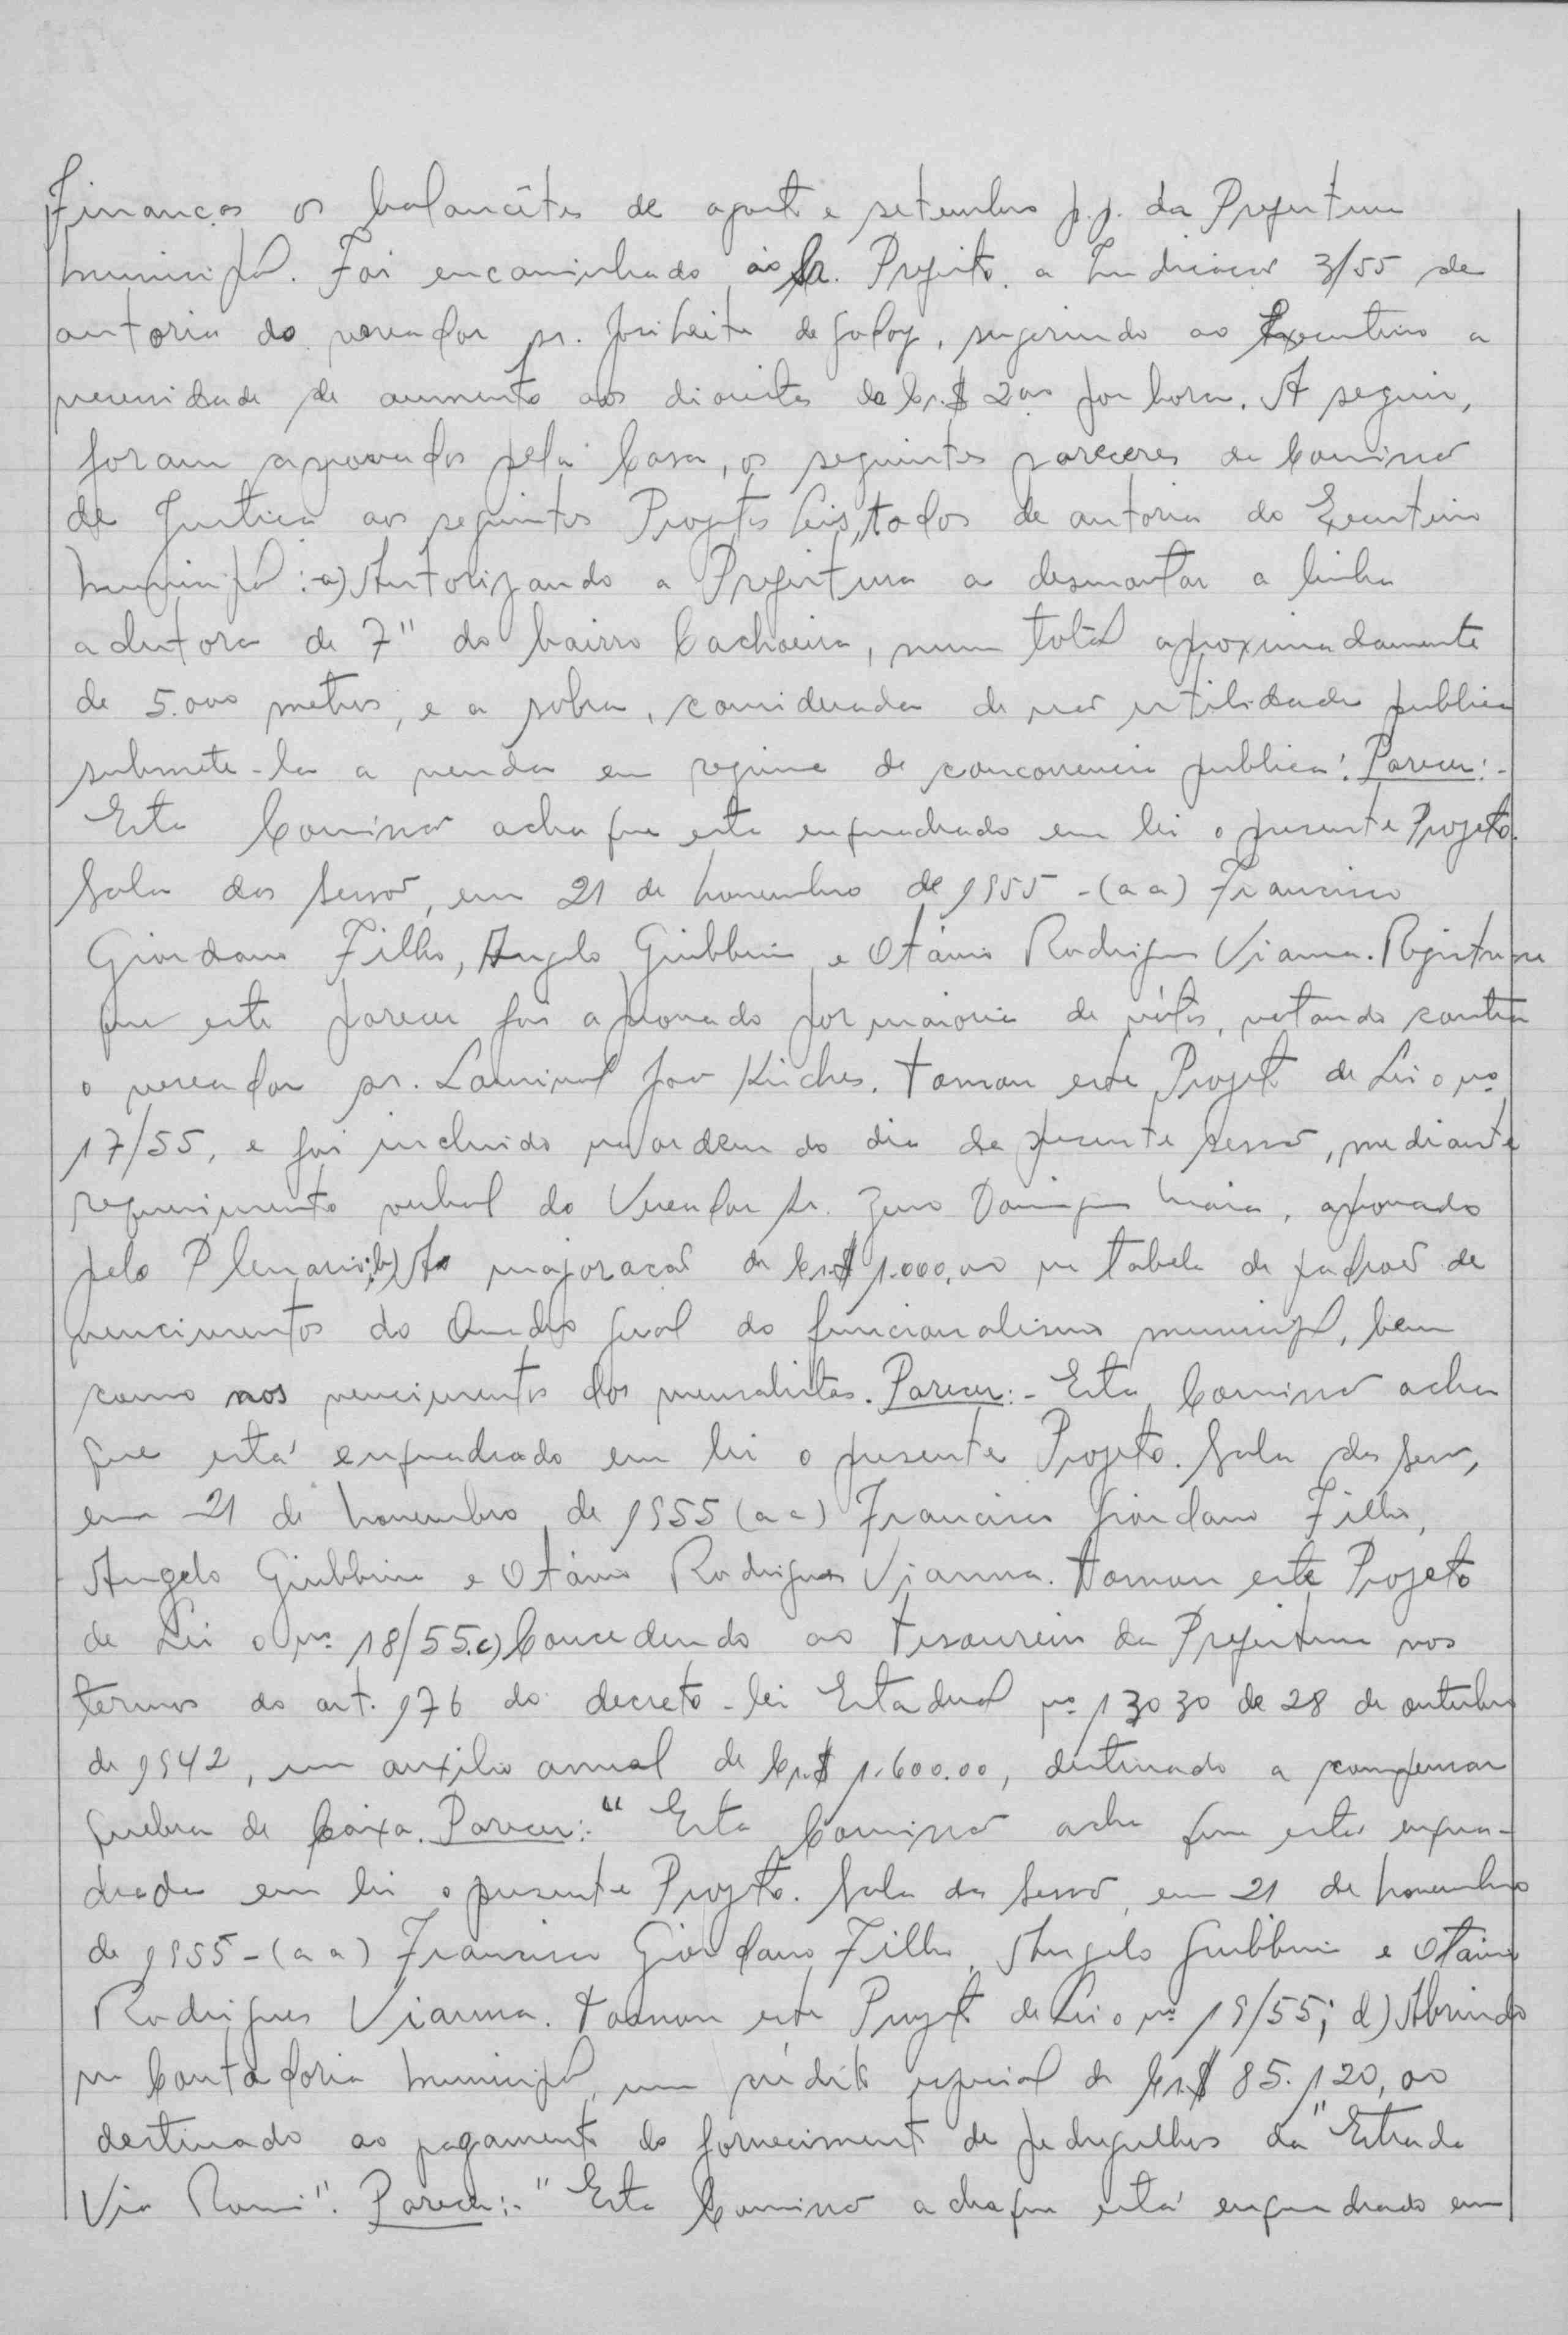 Finanças os balancêtes de agosto e setembro p.p. da Prefeitura
Municipal. Foi encaminhado ao Sr. Prefeito a Indicação 3/55 de
autoria do vereador sr. José Leite de Godoy, sugerindo ao Executivo a
necessidade de aumento aos diaristas de Cr.$ 2,00 por hora. A seguir,
foram aprovados pela Casa, os seguintes pareceres da Comissão
de Justiça aos seguintes Projetos Leis, todos de autoria do Executivo
Municipal: a) Autorizando a Prefeitura a desmontar a linha
adutora de 7" do bairro Cachoeira, num total aproximadamente
de 5.000 metros, e a sobra, considerada de não utilidade publica
submete-la a venda em regime de concorrencia publica: Parecer:-
Esta Comissão acha que esta enquadrado em lei o presente Projeto.
Sala das Sessões, em 21 de Novembro de 1955 - (a a) Francisco
Giordano Filho, Angelo Giubbini e Otávio Rodrigues Vianna. Registra-se
que este parecer foi aprovado por maioria de vótos, votando contra
o vereador sr. Lourival João Kirches. Tomou este Projeto de Lei o nº
17/55, e foi incluido na ordem do dia da presente sessão, mediante
requerimento verbal do Vereador Sr. Domingues Maia, aprovado
pelo Plenario; b) As majoração de Cr.$ 1.000,00 na tabela de padrão de
vencimentos do Quadro Geral do funcionalismo municipal, bem
como nos vencimentos dos mensalistas. Parecer:- Esta Comissão acha
que está enquadrado em lei o presente Projeto. Sala das Sessões,
em 21 de Novembro de 1955 (a a) Francisco Giordano Filho,
Angelo Giubbini e Otávio Rodrigues Vianna. Tomou este Projeto
de Lei o nº 18/55. c) Concedendo ao Tesoureiro da Prefeitura nos
termos do art. 176 do decreto-lei Estadual nº 13030 de 28 de outubro
de 1942, um auxilio anual de Cr.$ 1.600.00, destinado a compensar
quebra de Caixa. Parecer:- "Esta Comissão acha que está enqua-
drado em lei o presente Projeto. Sala das Sessões, em 21 de Novembro
de 1955 - (a a) Francisco Giordano Filho, Angelo Giubbini e Otávio
Rodrigues Vianna. Tomou este Projeto de Lei o nº 19/55; d) Abrindo
na Contadoria Municipal, um crédito especial de Cr.$ 85.120,00
destinado ao pagamento do fornecimento de pedregulhos da "Estrada
Via Romi". Parecer:- "Esta Comissão acha que está enquadrado em